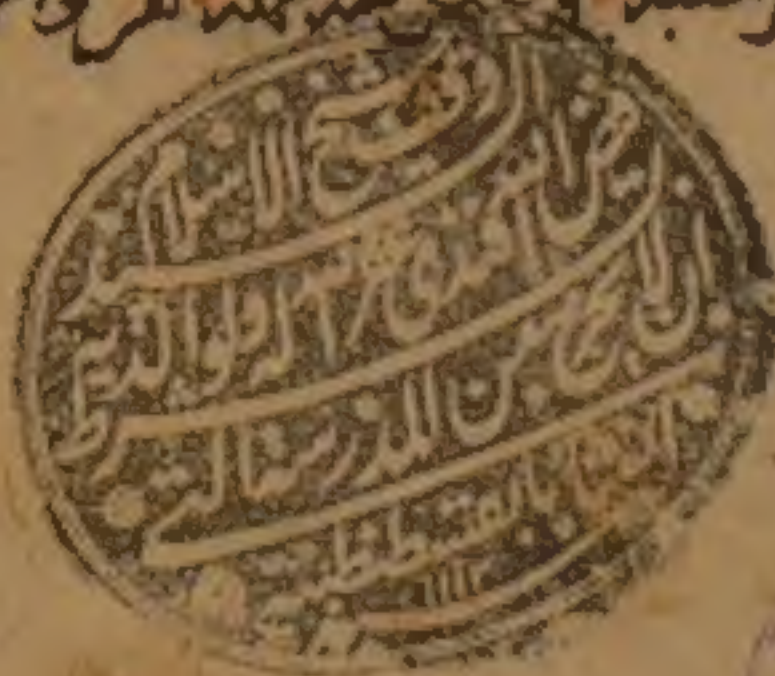 وقف شيخ الاسلام السيد
فيض الله افندي غفر الله له ولوالديه بشرط
ان لا يخرج من المدرسة التي
انشاها بالقسطنطينية
١١١٢